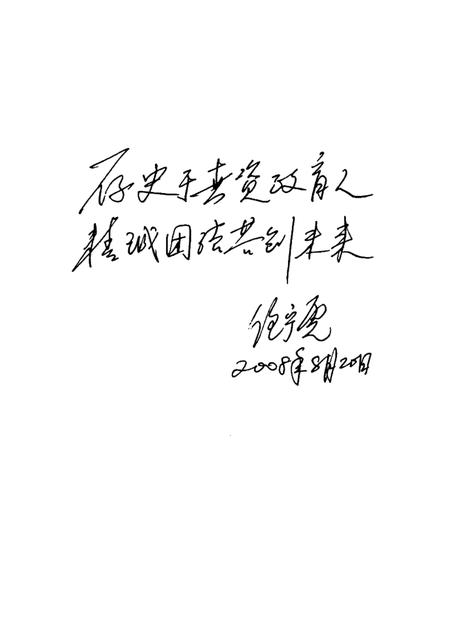 存史于真资政育人
精诚团结共创未来
任宁虎
2008年8月20日